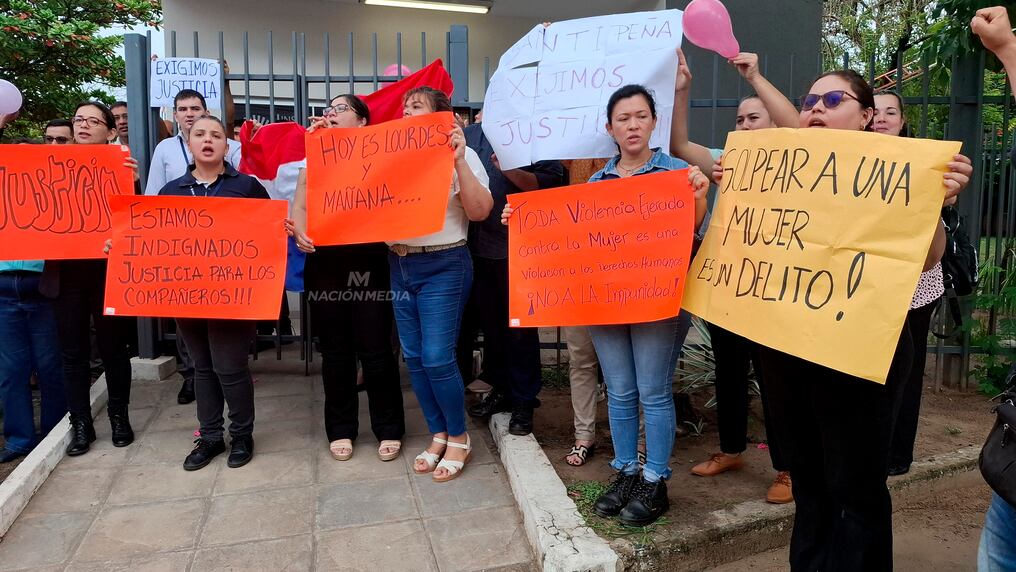 EXIGIMOS
JUSTICIA
JUSTICIA
ESTAMOS
INDIGNADOS
JUSTICIA PARA LOS
COMPAÑEROS!!!
HOY ES LOURDES
Y
MAÑANA....
ANTIPEÑA
EXIJIMOS
JUSTICIA
TODA VIOLENCIA EJERCIDA
CONTRA LA MUJER ES UNA
VIOLACION A LOS DERECHOS HUMANOS
¡NO A LA IMPUNIDAD!
GOLPEAR A UNA
MUJER
ES UN DELITO!
NACIÓNMEDIA